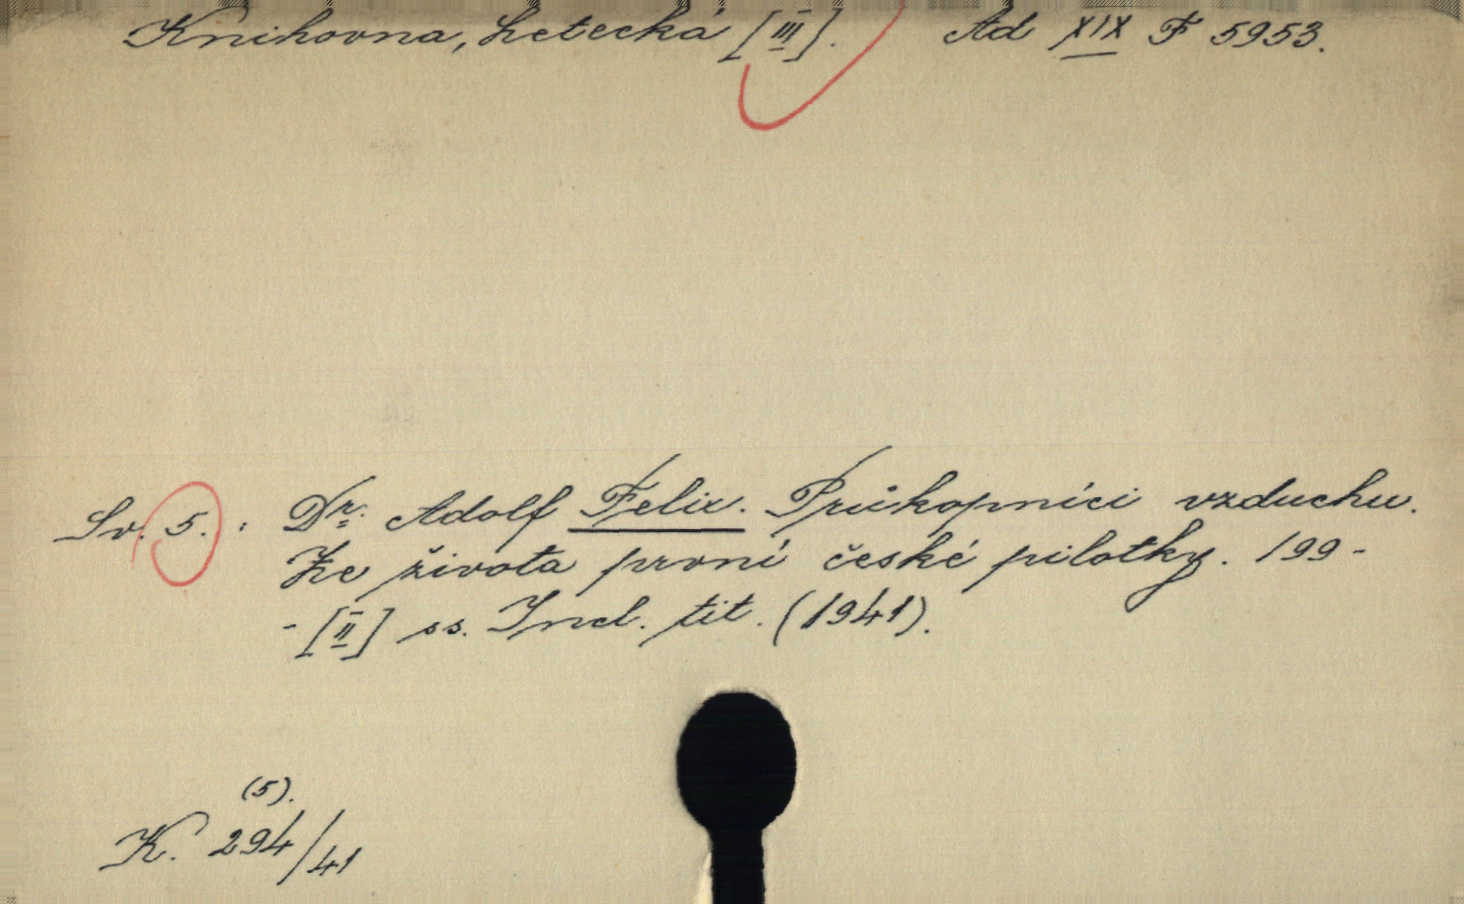 Knihovna, Letecká [III]. Ad XIX F 5953.
Sv. 5. : Dr. Adolf Felix. Průkopníci vzduchu.
Ze života první české pilotky. 199-
-[II] ss. Incl. tit. (1941).
(5).
K. 294/41